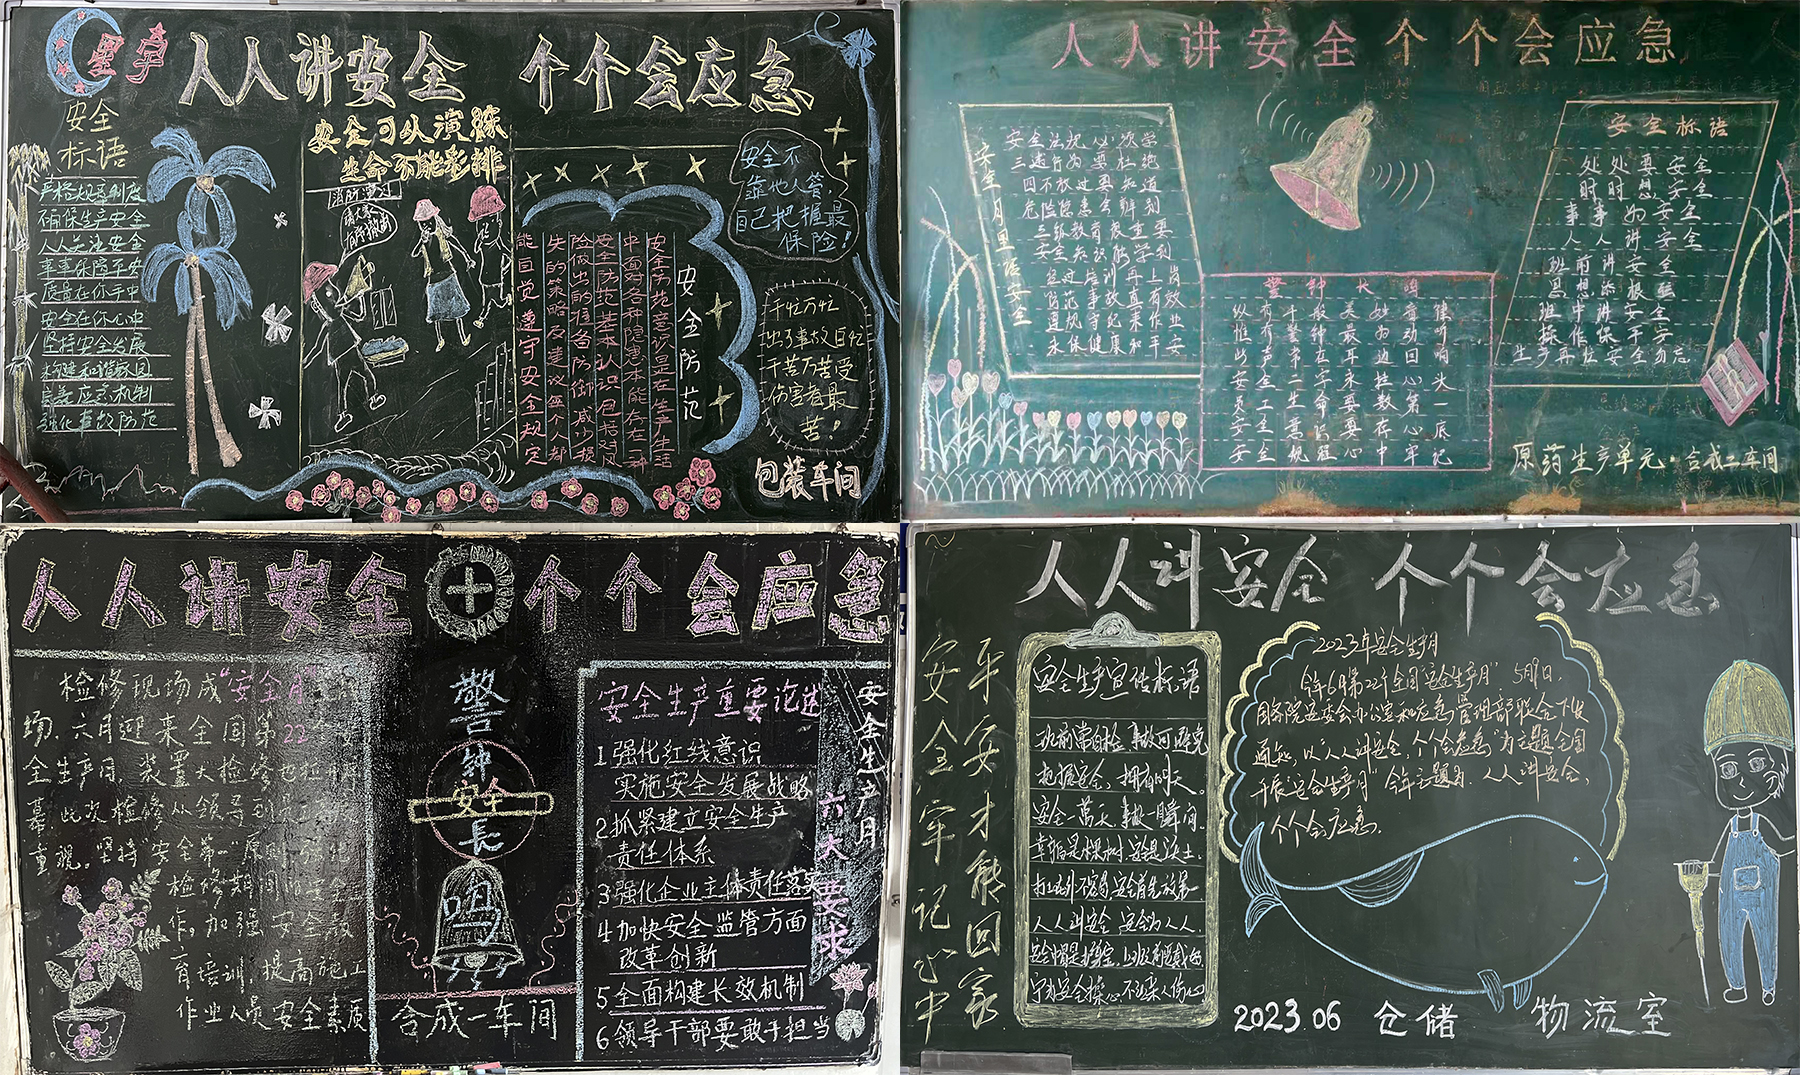 星宇
人人讲安全 个个会应急
安全
标语
严格规章制度
确保生产安全
人人关注安全
事事保障平安
质量在你手中
安全在你心中
坚持安全发展
构建和谐校园
完善应急机制
强化事故防范
安全可以演练
生命不能彩排
消防演习
安全防范
安全防范意识是在生产生活
中面对各种隐患本能存在一种
安全防范基本认识包括对风
险做出的准备防御减少损
失的策略及建议每个人都
能自觉遵守安全规定
安全不
靠他人管,
自己把握最
保险!
千忙万忙
出了事故白忙
千苦万苦受
伤害者最
苦!
包装车间
人人讲安全个个会应急
安全月里话安全
安全法规必须学
三违行为要杜绝
四不放过要知道
危险隐患会辨别
三级教育很重要
安全知识能学到
经过培训再上岗
遵规守纪来作业
永保健康和平安
警钟长鸣
安全标语
处处要安全
时时想安全
事事为安全
人人讲安全
班前讲安全
思想添根弦
班中讲安全
操作保平安
原药生产单元·合成二车间
人人讲安全个个会应急
检修现场成"安全月"
场,六月迎来全国第22个
全生产月,装置大检修也拉开
幕,此次检修从领导到员工
重视,坚持"安全第一"原则,强化
检修期间的安全
作,加强安全教
育培训,提高施工
作业人员安全素质
警钟长鸣
安全
合成一车间
安全生产重要论述
1强化红线意识
实施安全发展战略
2抓紧建立安全生产
责任体系
3强化企业主体责任落实
4加快安全监管方面
改革创新
5全面构建长效机制
6领导干部要敢于担当
六大要求
安全生产月
人人讲安全 个个会应急
平安才能回家
安全牢记心中
安全生产宣传标语
班前常自检,事故可避免
把握安全,拥有明天。
安全一万天,事故一瞬间.
幸福是棵树,安全是沃土.
人人讲安全,安全为人人.
2023年安全生产月
今年6月第22个全国"安全生产月"5月1日,
国务院安委会办公室和应急管理部联合下发
通知,以"人人讲安全,个个会应急"为主题全国
开展"安全生产月"今年主题为:人人讲安全,
个个会应急.
2023.06 仓储 物流室